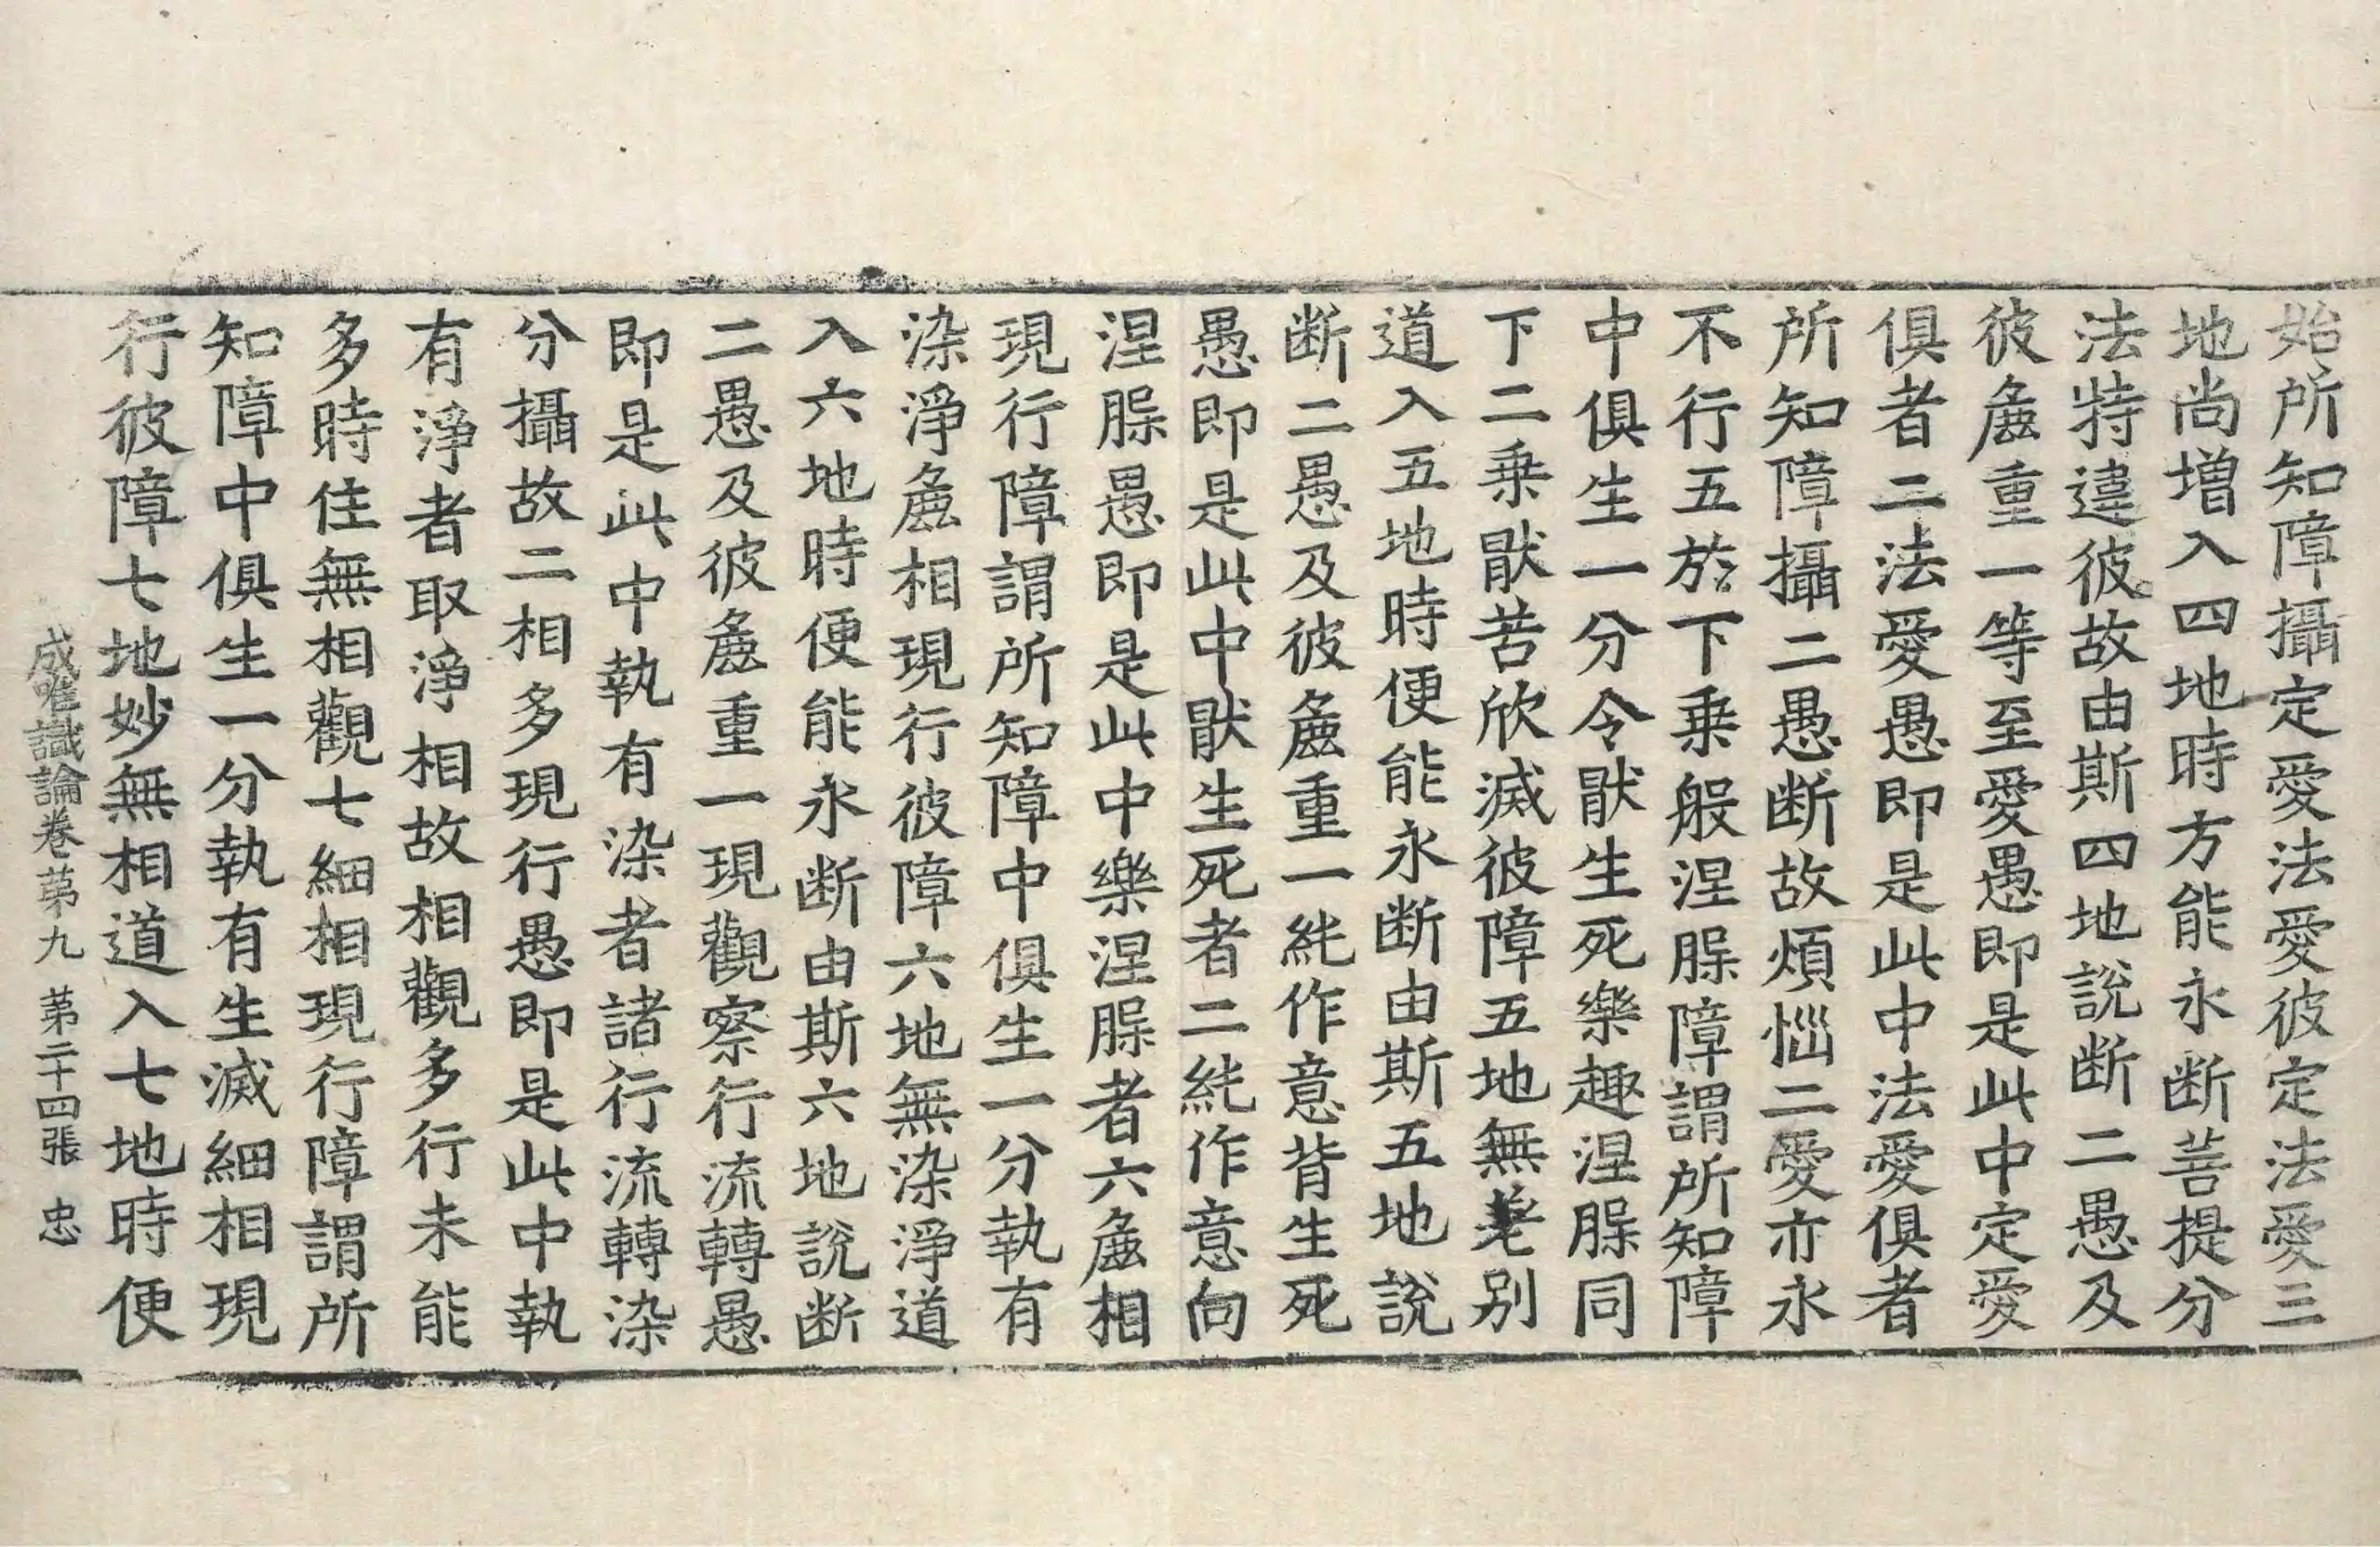 始所知障攝定愛法愛彼定法愛三
地尚增入四地時方能永断菩提分
法特違彼故由斯四地說断二愚及
彼麁重一等至愛愚即是此中定愛
俱者二法愛愚即是此中法愛俱者
所知障攝二愚断故煩惱二愛亦永
不行五於下乗般涅槃障謂所知障
中俱生一分令猒生死樂趣涅槃同
下二乗猒苦欣滅彼障五地無差別
道入五地時便能永断由斯五地說
断二愚及彼麁重一純作意背生死
愚即是此中猒生死者二純作意向
涅槃愚即是此中樂涅槃者六麁相
現行障謂所知障中俱生一分執有
染淨麁相現行彼障六地無染淨道
入六地時便能永断由斯六地說断
二愚及彼麁重一現觀察行流轉愚
即是此中執有染者諸行流轉染
分攝故二相多現行愚即是此中執
有淨者取淨相故相觀多行未能
多時住無相觀七細相現行障謂所
知障中俱生一分執有生滅細相現
行彼障七地妙無相道入七地時便
成唯識論卷苐九 苐二十四張 忠